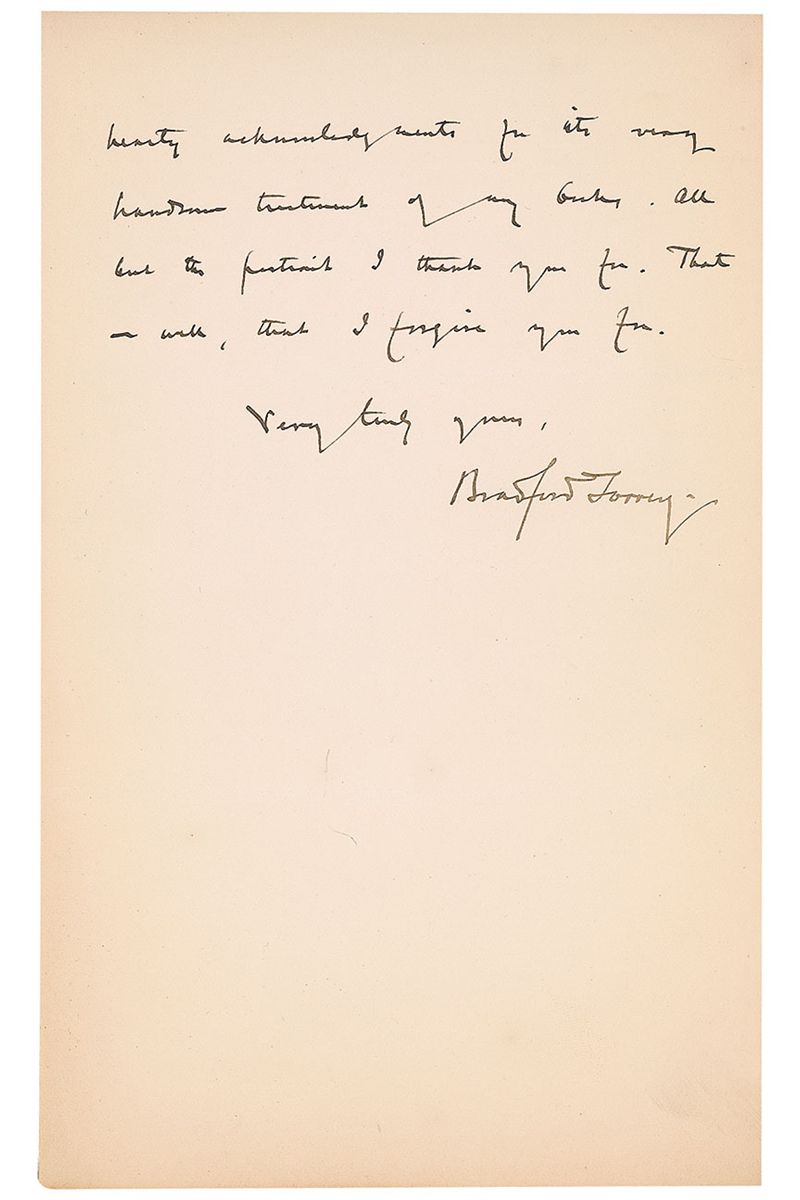 hearty acknowledgments for its very
handsome treatment of my books. All
but the portrait I thank you for. That
— well, that I forgive you for.
Very truly yours,
Bradford Torrey.